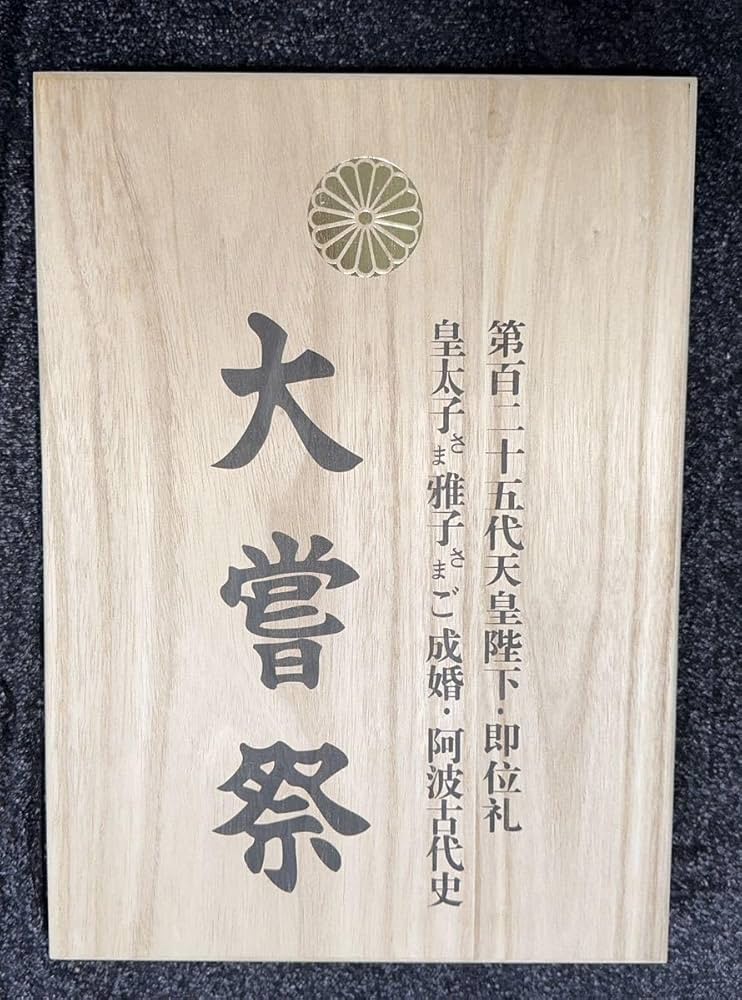 第百二十五代天皇陛下・即位礼
皇太子さま雅子さまご成婚・阿波古代史
大嘗祭